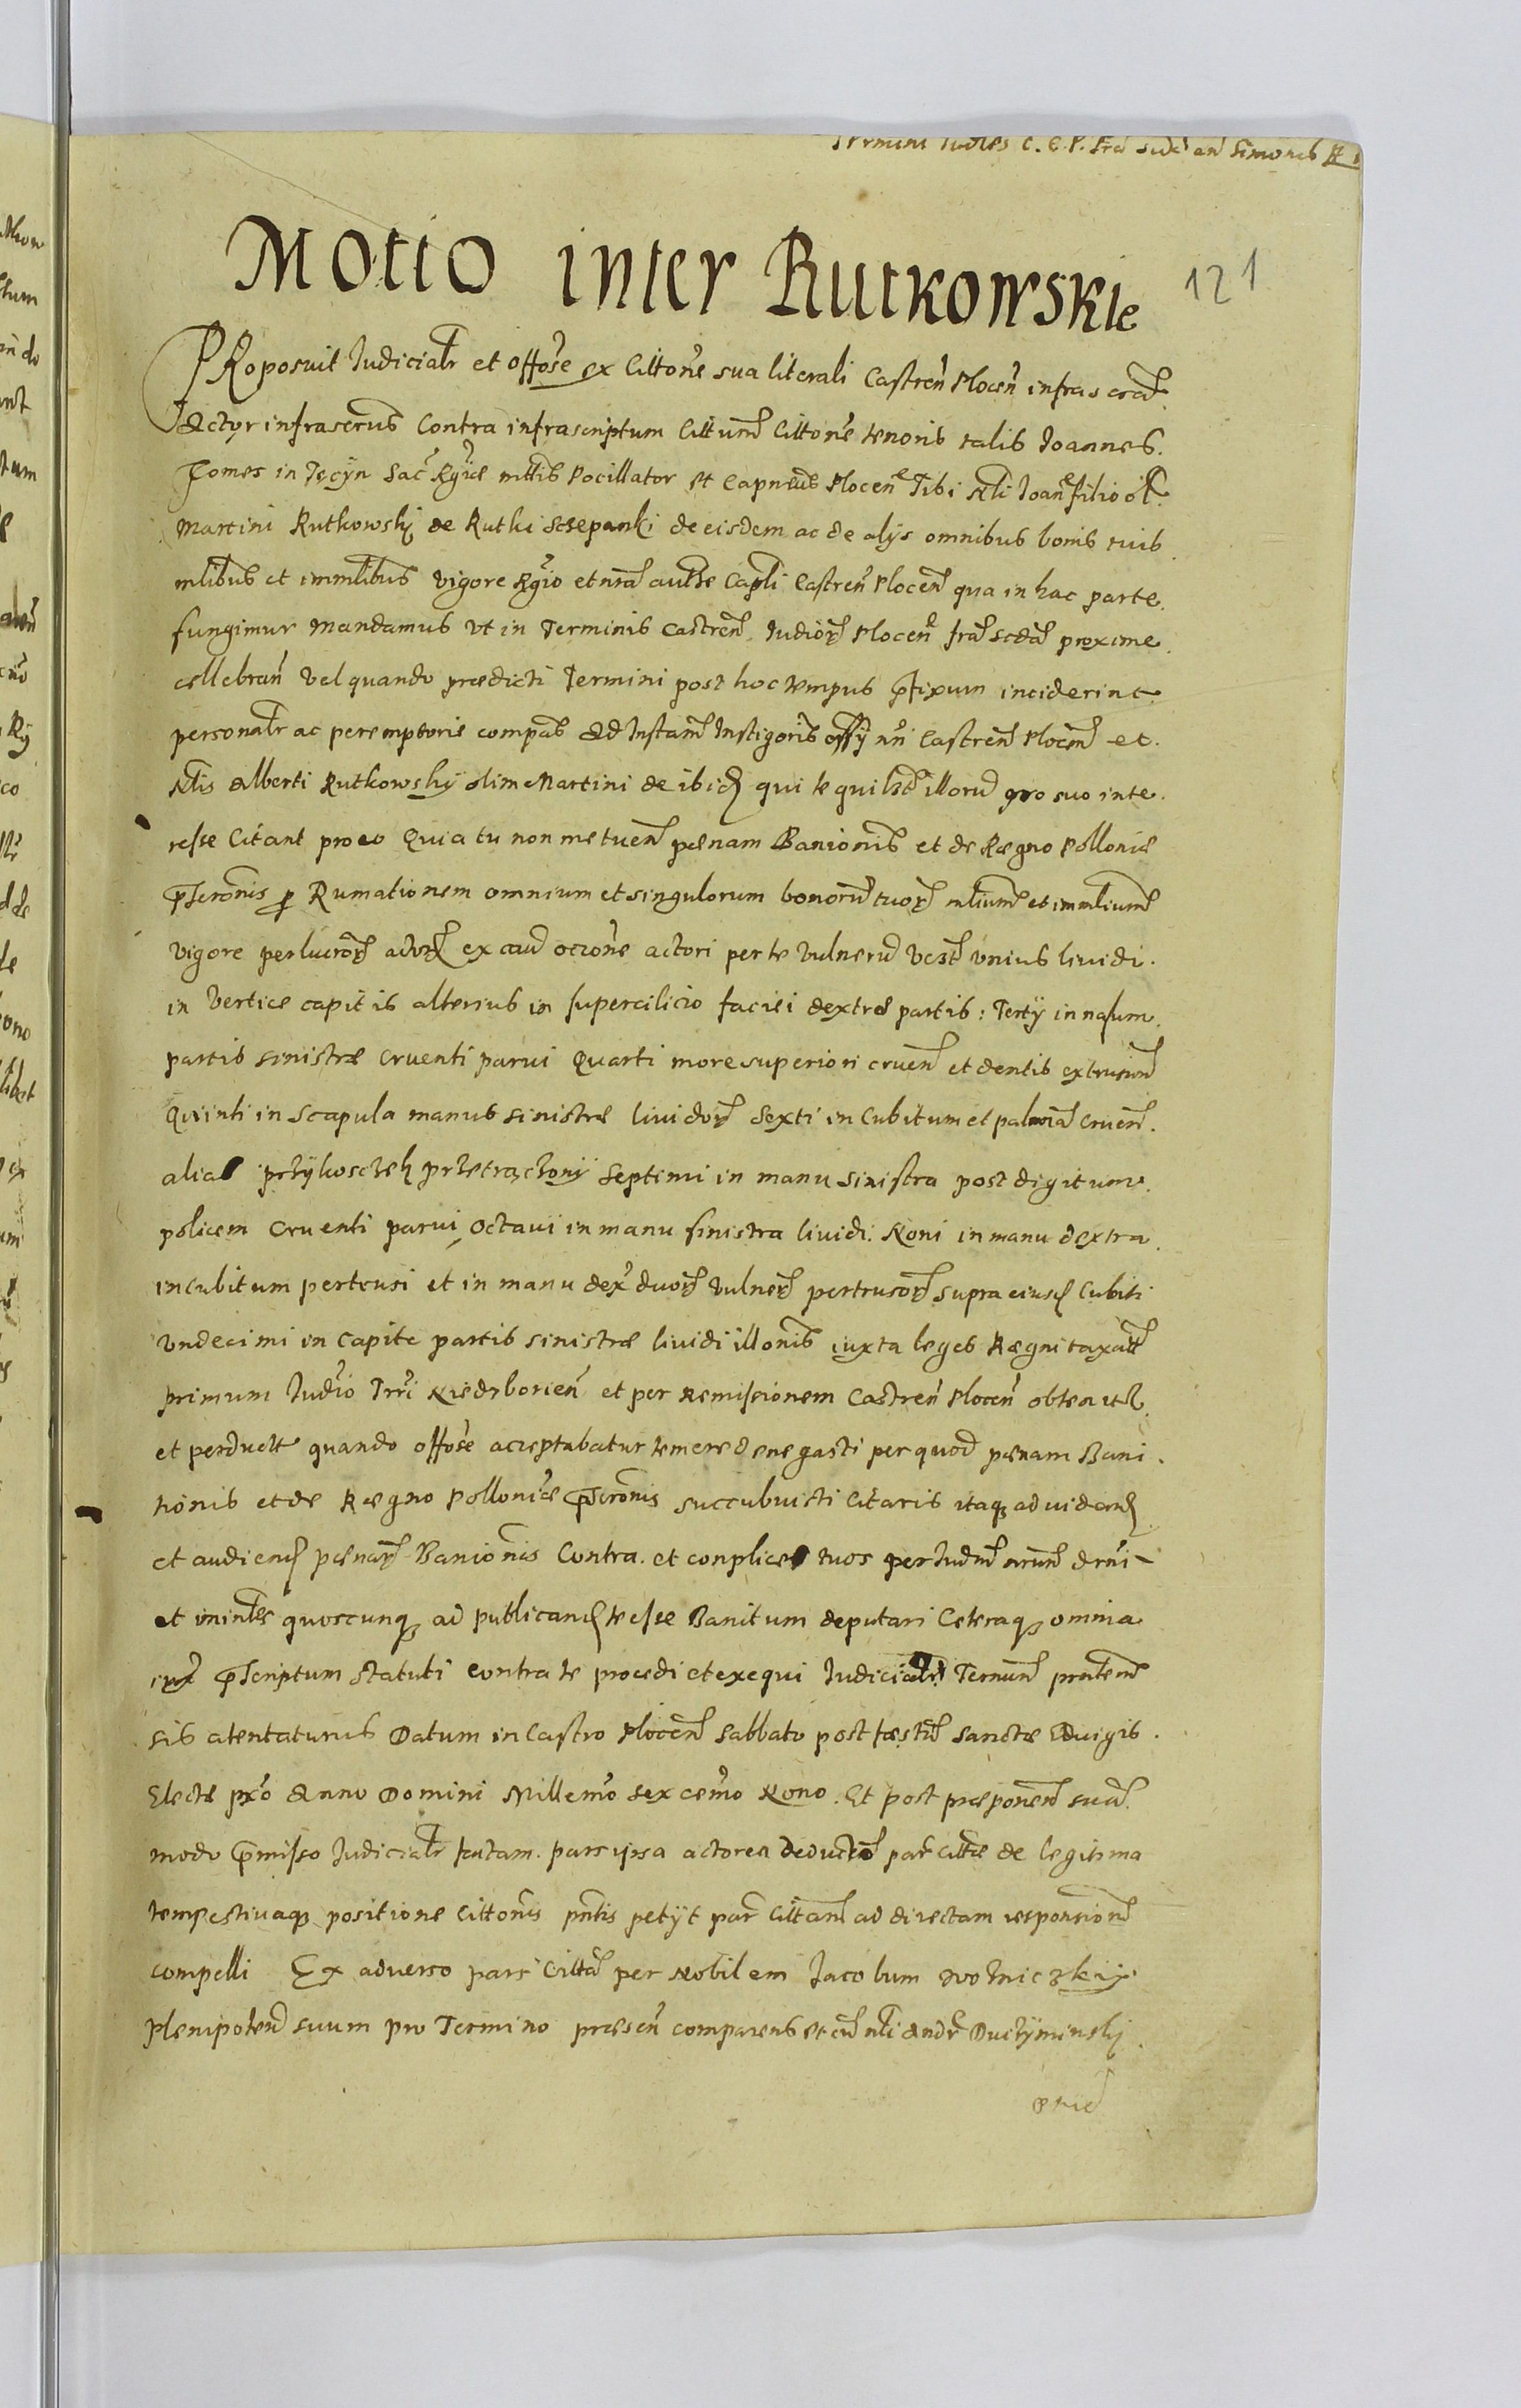 Termini Iudles C. C. P. fra Scda an Simonis
Motio inter Rutkowskie
121
PRoposuit Iudicialr et Offose ex Cittone sua literali Castren Plocen infras crad
Actor infrascrus Contra infrascriptum Cittum Cittone tenoris talis Ioannes.
Comes in Teçÿn Sac Rgiæ mttis Pocillator et Capneus Plocen Tibi Nli Ioan filio ol
Martini Rutkowskj de Rutki Sczepanki de eisdem ac de alijs omnibus bonis tuis
mlibus et immlibus vigore Rgio et nra authe Capli Castren Plocen qua in hac parte
fungimur Mandamus vt in Terminis Castren Iudior Plocen fra Scda proxime
cellebran vel quando prædicti Termini post hoc tempus pfixum inciderint
personalr ac peremptorie compas Ad Instam Instigoris offÿ nri Castren Plocen et.
Nlis Alberti Rutkowskÿ olim Martini de ibid qui te quilzt illoru pro suo inte
resse Citant pro eo Quia tu non metuen pænam Banionis et de Rægno Polloniæ
pscronis p Rumationem omnium et singulorum bonoru tuor mlium et immlium
vigore perlucror actor ex cau occone actori per te vulneru vczt vnius liuidi.
in Vertice capitis alterius in supercilicio faciei dextræ partis: Tertÿ in nasum
partis sinistræ Cruenti parui Quarti more superiori cruen et dentis extrusion
Quinti in scapula manus sinistræ liuidor Sexti in Cubitum et palmam Cruen.
alias przÿkosczek przetraçzonÿ Septimi in manu sinistra post digitum
policem Cruenti parui, Octaui in manu sinistra liuidi. Noni in manu dextra
in Cubitum pertrusi et in manu dex duor vulner pertrusor supra eiusd Cubiti
vndecimi in Capite partis sinistræ liuidi illonis iuxta leges Rægni taxatt
primum Iudio Trri Niedzborien et per Remissionem Castren Plocen obtent
et perduct quando offose acceptabatur temere denegasti per quod pænam Bani
tionis et de Rægno Polloniæ pscronis succubuisti Citaris itaq ad uidend
et audiend pænar Banionis Contra. et conplices tuos per Iudm nrum drni
et minles quoscunq ad publicand te esse Banitum deputari Ceteraq omnia
iux pscriptum statuti contra te procedi et exequi Iudicialr Termum pntem
sis atentaturus Datum in Castro Plocen Sabbato post fæstu Sanctæ Eduigis.
Electæ pxo Anno Domini Millemo sexcemo Nono. Et post præponem suam
modo pmisso Iudicialr factam. pars ipsa actorea deducto par cittæ de legitima
tempestiuaq positione Cittonis pntis petijt par Cittam ad directam responsionem
compelli Ex aduerso pars Citta per Nobilem Iacobum Wozniczkij
Plenipoten suum pro Termino præsen comparens et cu nli Andr Duczÿminskj